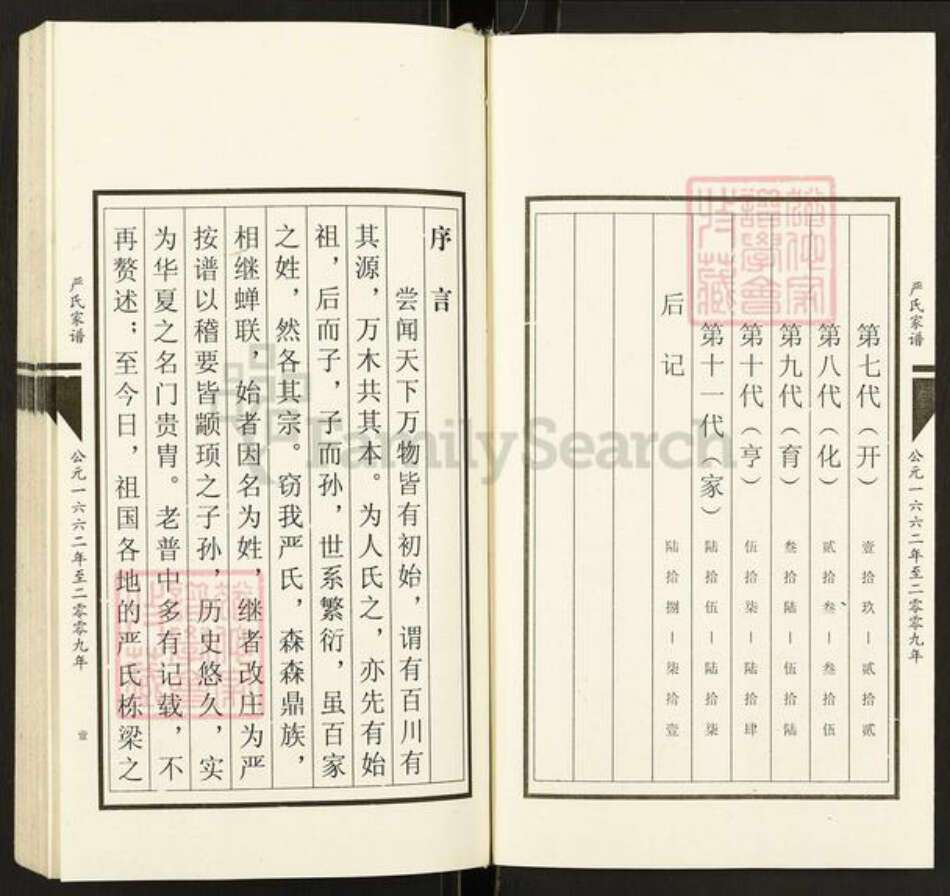 严氏家谱
公元一六六二年至二零零九年
第七代（开） 壹拾玖—贰拾贰
第八代（化） 贰拾叁—叁拾伍
第九代（育） 叁拾陆—伍拾陆
第十代（亨） 伍拾柒—陆拾肆
第十一代（家） 陆拾伍—陆拾柒
后记 陆拾捌—柒拾壹
序言
尝闻天下万物皆有初始，谓有百川有
其源，万木共其本。为人氏之，亦先有始
祖，后而子，子而孙，世系繁衍，虽百家
之姓，然各其宗。窃我严氏，森森鼎族，
相继蝉联，始者因名为姓，继者改庄为严
按谱以稽要皆颛顼之子孙，历史悠久，实
为华夏之名门贵胄。老普中多有记载，不
再赘述；至今日，祖国各地的严氏栋梁之
严氏家谱
公元一六六二年至二零零九年
壹
FamilySearch